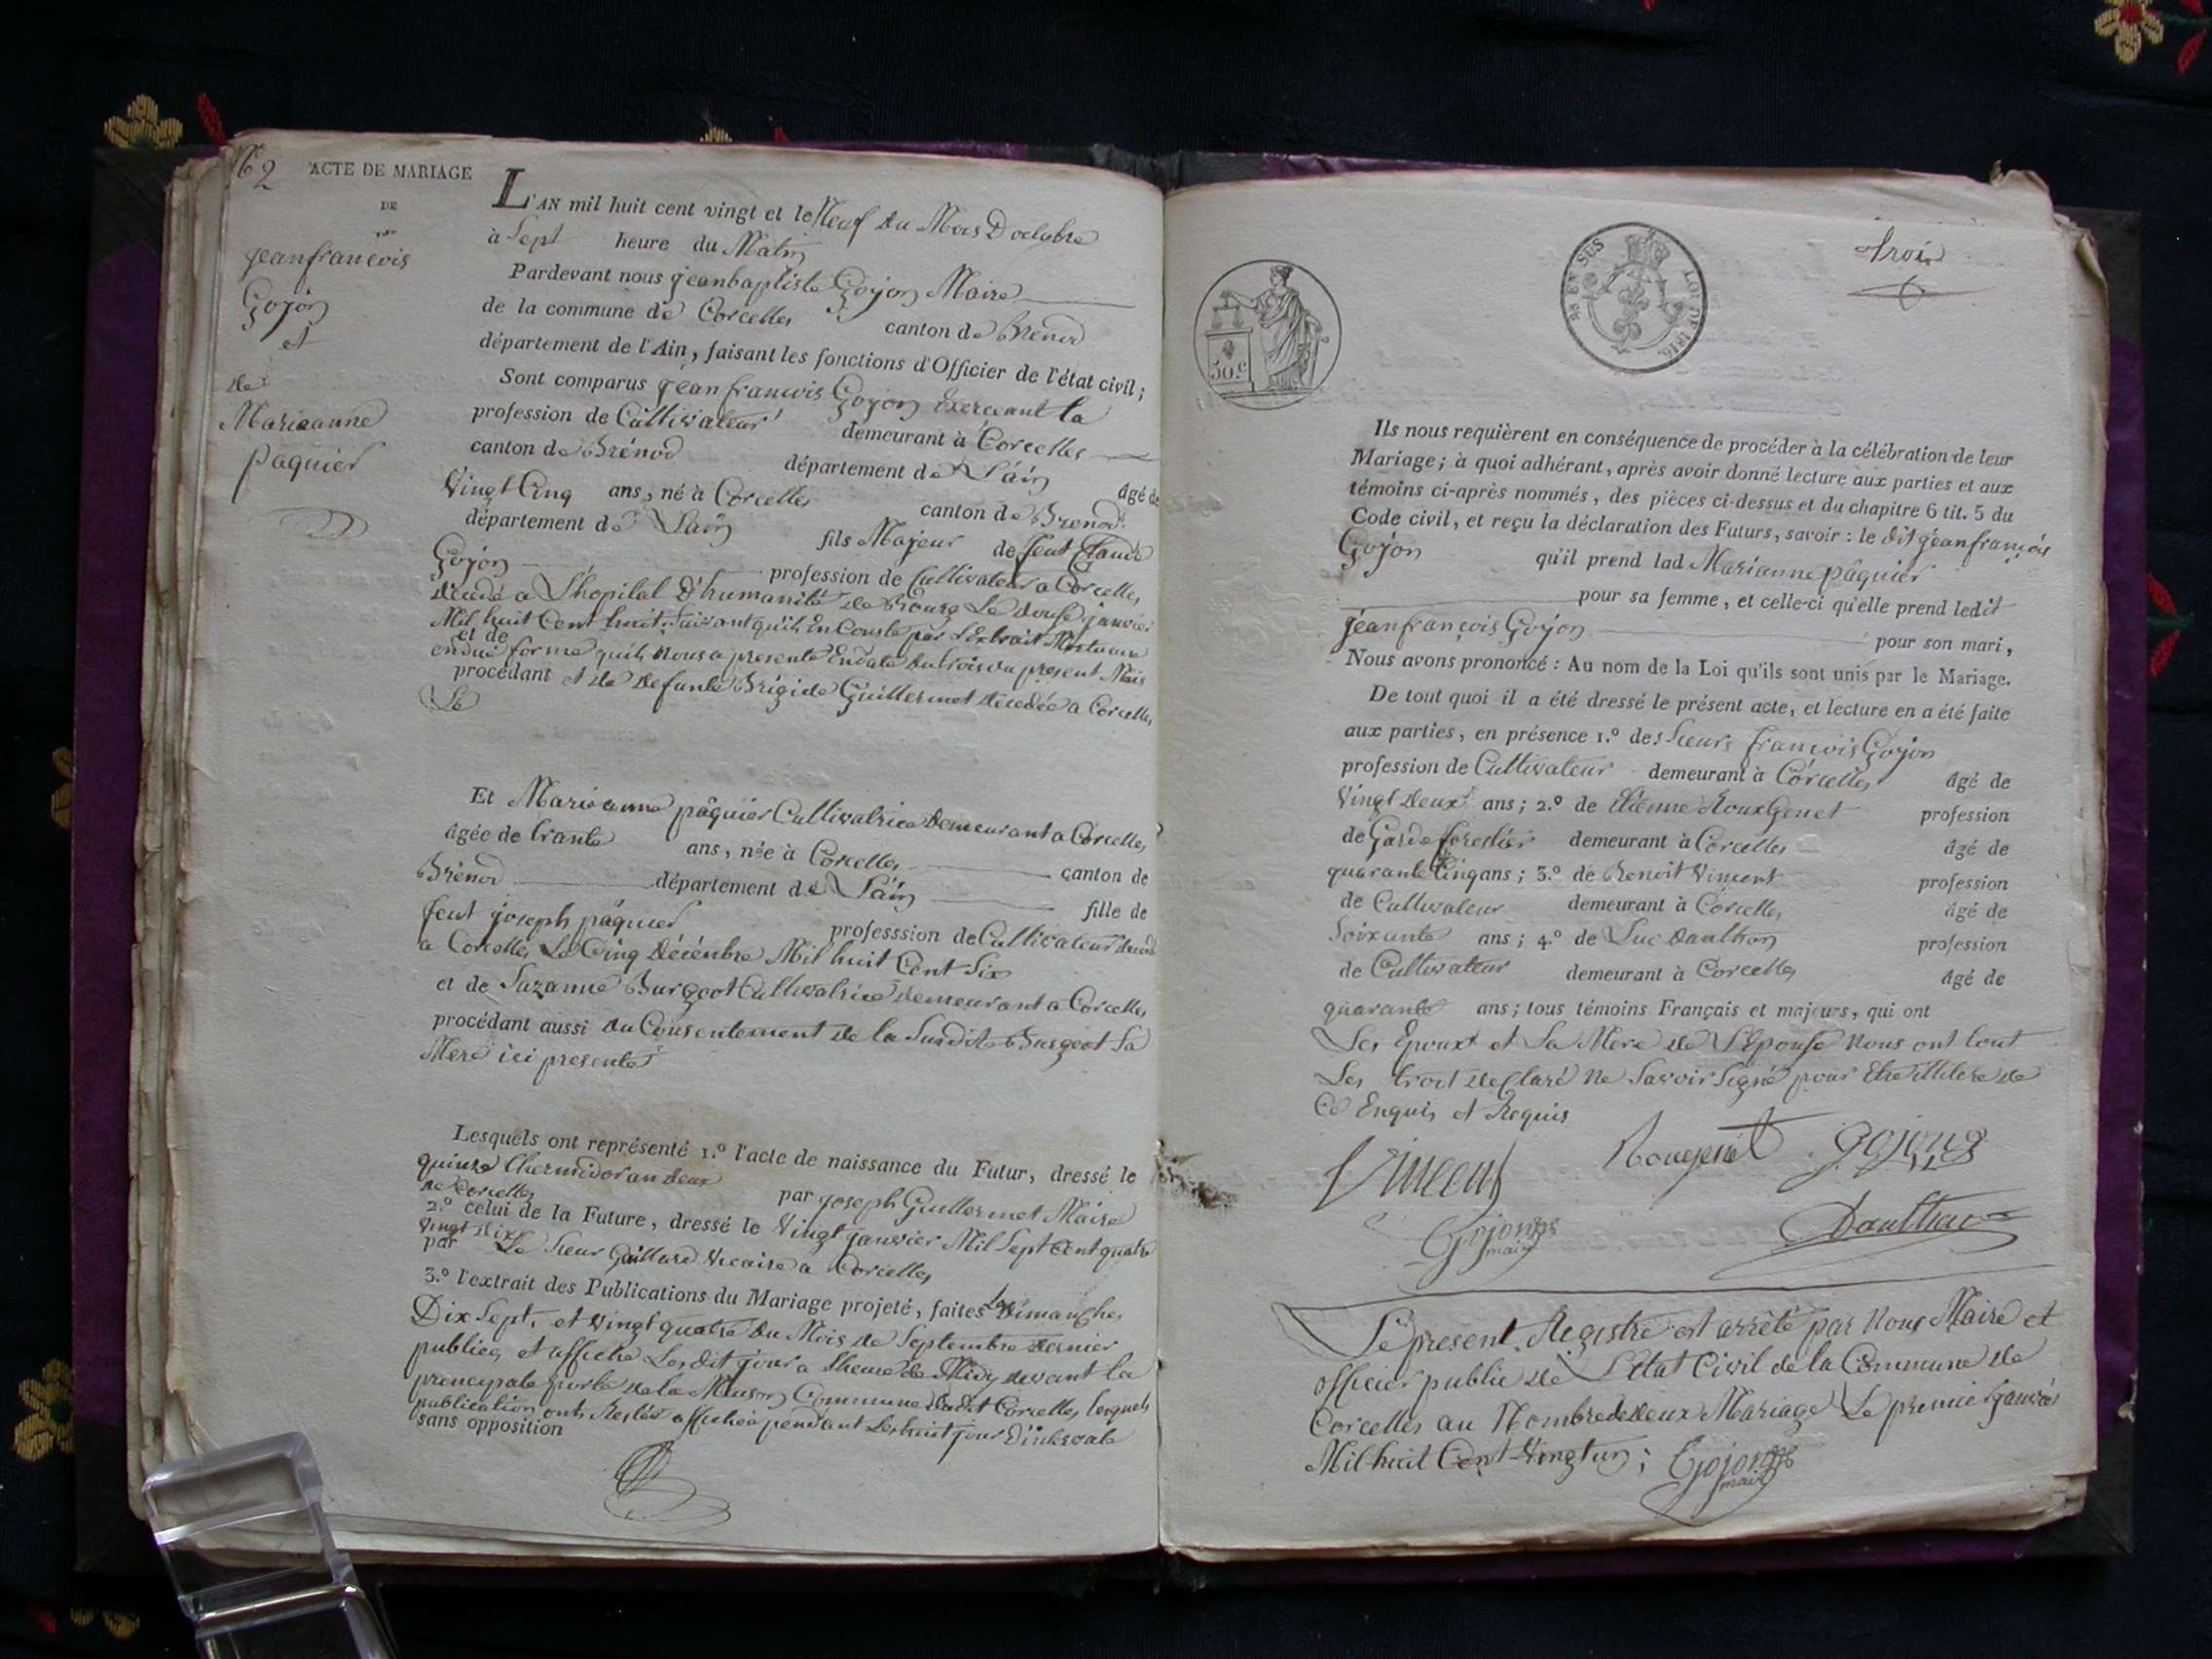 N° 2 ACTE DE MARIAGE
DE
jeanfrancois
Gojon
et
de
Marieanne
paquier
L'AN mil huit cent vingt et le Neuf du Mois D'octobre
à Sept heure du Matin
Pardevant nous jeanbaptiste Gojon Maire
de la commune de Corcelles canton de Brenod
département de l'Ain, faisant les fonctions d'Officier de l'état civil;
Sont comparus jean francois Gojon Exercant la
profession de Cultivateur demeurant à Corcelles
canton de Brénod département de L'ain âgé de
Vingt Cinq ans, né à Corcelles canton de Brenod
département de L'ain fils Majeur de feut Claude
Gojon profession de Cultivateur a Corcelles
décédé a L'hopital D'humanité de Bourg Le douse janvier
Mil huit Cent huit, suivant qu'il En Conste par L'Extrait Mortuaire
et de
endue forme quil nous a presenté Endate du trois du present Mois
procédant et de defunte Brigide Guillermet décédée a Corcelles
Le
Et Marieanne pâquier Cultivatrice demeurant a Corcelles
âgée de trante ans, née à Corcelles canton de
Brénod département de L'ain fille de
feut joseph pâquier professsion de Cultivateur décédé
a Corcelles Le Cinq Décémbre Mil huit Cent Six
et de Suzanne Burgeot Cultivatrice demeurant a Corcelles
procédant aussi du Consentement de la Susdite Burgeot Sa
Mere ici presente
Lesquels ont représenté 1.° l'acte de naissance du Futur, dressé le
quinze thermidor an deux par joseph Guillermet Maire
de Corcelles
2.° celui de la Future, dressé le Vingt janvier Mil Sept Cent quatre
vingt dix
par Le Sieur Gaillard Vicaire a Corcelles
3.° l'extrait des Publications du Mariage projeté, faites Les Dimanches
Dix Sept, et vingt quatre du Mois de Septembre dernier
publiées et affiché Lesdit jour a Lheure de Midy devant la
principale porte de la Maison Commune dudit Corcelles lesquels
publication ont Restée affichée pendant Les huit jour D'intervale
sans opposition
30.c
EN SUS LOI DE 1816.
trois
Ils nous requièrent en conséquence de procéder à la célébration de leur
Mariage; à quoi adhérant, après avoir donné lecture aux parties et aux
témoins ci-après nommés, des pièces ci-dessus et du chapitre 6 tit. 5 du
Code civil, et reçu la déclaration des Futurs, savoir: le dit jéanfrançois
Gojon qu'il prend lad Marianne pâquier
pour sa femme, et celle-ci qu'elle prend ledit
jéanfrançois Gojon pour son mari,
Nous avons prononcé: Au nom de la Loi qu'ils sont unis par le Mariage.
De tout quoi il a été dressé le présent acte, et lecture en a été faite
aux parties, en présence 1.° des Sieurs francois Gojon
profession de Cultivateur demeurant à Corcelles âgé de
Vingt deux ans; 2.° de Etienne Rouxgenet profession
de Garde forestier demeurant à Corcelles âgé de
quarante Cinq ans; 3.° de Benoit Vincent profession
de Cultivateur demeurant à Corcelles âgé de
Soixante ans; 4.° de Luc Daulthon profession
de Cultivateur demeurant à Corcelles âgé de
quarante ans; tous témoins Français et majeurs, qui ont
Les Epoux et La Mere de L'Epouse Nous ont tout
Les troit déclaré Ne Savoir Signé pour Etre illitere de
Ce Enquis et Requis
Vincent Rougenet gojon
Gojon maire Daulthon
Le present Registre est arrêté par Nous Maire et
officier public de L'Etat Civil de la Commune de
Corcelles au Nombre de deux Mariage Le premier janvier
Mil huit Cent Vingt un; Gojon maire